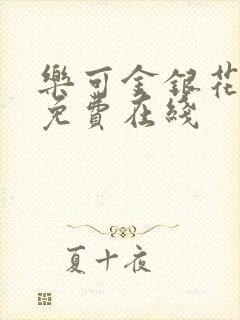 樂可金銀花
免費在綫
夏十夜